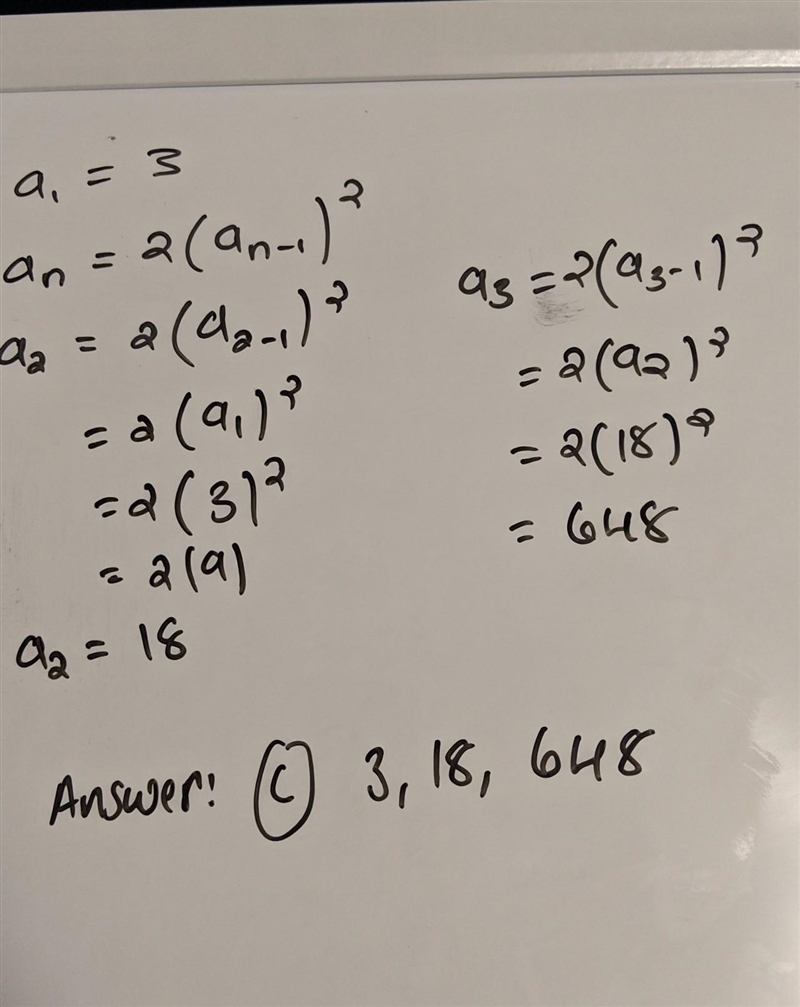 a₁ = 3
aₙ = 2(aₙ₋₁)²
a₂ = 2(a₂₋₁)²
= 2(a₁)²
= 2(3)²
= 2(9)
a₂ = 18
a₃ = 2(a₃₋₁)²
= 2(a₂)²
= 2(18)²
= 648
Answer: (C) 3, 18, 648